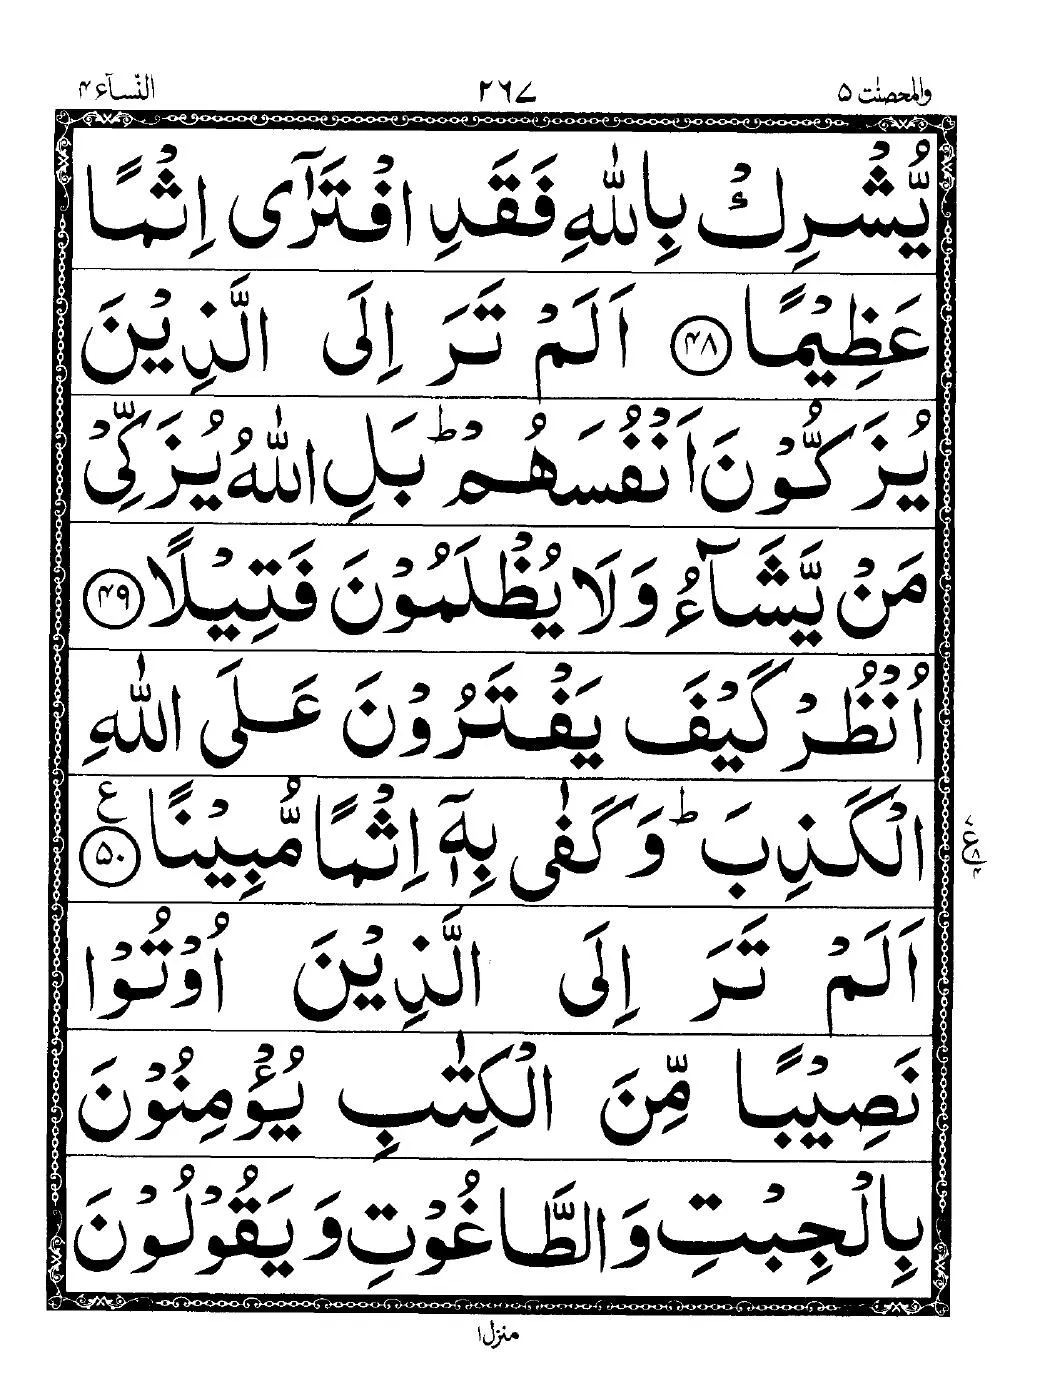 والمحصنٰت ۵ ۲۶۷ النّسآء ۴
يُّشْرِكْ بِاللّٰهِ فَقَدِ افْتَرٰٓى اِثْمًا
عَظِيْمًا ﴿۴۸﴾ اَلَمْ تَرَ اِلَى الَّذِيْنَ
يُزَكُّوْنَ اَنْفُسَهُمْ ؕ بَلِ اللّٰهُ يُزَكِّىْ
مَنْ يَّشَآءُ وَلَا يُظْلَمُوْنَ فَتِيْلًا ﴿۴۹﴾
اُنْظُرْ كَيْفَ يَفْتَرُوْنَ عَلَى اللّٰهِ
الْكَذِبَ ؕ وَكَفٰى بِهٖۤ اِثْمًا مُّبِيْنًا ﴿۵۰﴾ ع
۷ ع ۸ ۴
اَلَمْ تَرَ اِلَى الَّذِيْنَ اُوْتُوْا
نَصِيْبًا مِّنَ الْكِتٰبِ يُؤْمِنُوْنَ
بِالْجِبْتِ وَالطَّاغُوْتِ وَيَقُوْلُوْنَ
منزل ۱